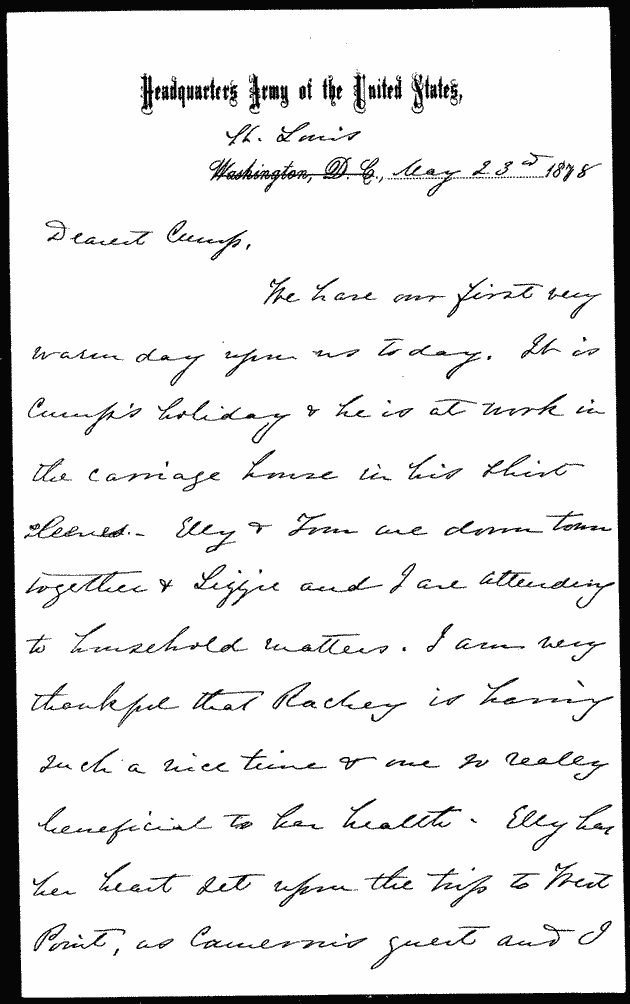 Headquarters Army of the United States,
St. Louis
Washington, D. C., May 23rd 1878
Dearest Cump,
We have our first very
warm day upon us today. It is
Cump's holiday & he is at work in
the carriage house in his shirt
sleeves. - Elly & Tom are down town
together & Lizzie and I are attending
to household matters. I am very
thankful that Rachey is having
such a nice time & one so really
beneficial to her health - Elly has
her heart set upon the trip to West
Point, as Cameron's guest and I